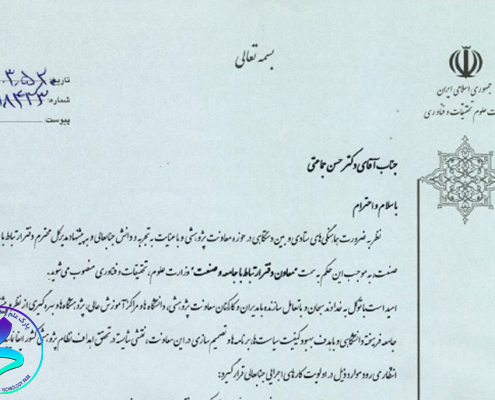 بسمه تعالی
جمهوری اسلامی ایران
وزارت علوم، تحقیقات و فناوری
تاریخ:
شماره:
پیوست:
جناب آقای دکتر حسن جماعتی
با سلام و احترام
نظر به ضرورت هماهنگی‌های ستادی و بین دستگاهی در حوزه معاونت پژوهشی و با عنایت به تجربه و دانش جنابعالی و به پیشنهاد مدیرکل محترم دفتر ارتباط با
صنعت، به موجب این حکم به سمت "معاون دفتر ارتباط با جامعه و صنعت" وزارت علوم، تحقیقات و فناوری منصوب می‌شوید.
امید است با توکل به خداوند سبحان و با تعامل سازنده با مدیران و کارکنان معاونت پژوهشی، دانشگاه‌ها و مراکز آموزش عالی، پژوهشگاه‌ها و بهره‌گیری از
جامعه فرهیخته دانشگاهی و با هدف بهبود کیفیت سیاست‌ها، برنامه‌ها و تصمیم سازی در این معاونت، نقشی شایسته در تحقق اهداف نظام پژوهشی کشور ایفا
انتظار می‌رود موارد ذیل در اولویت کارهای اجرایی جنابعالی قرار گیرد: